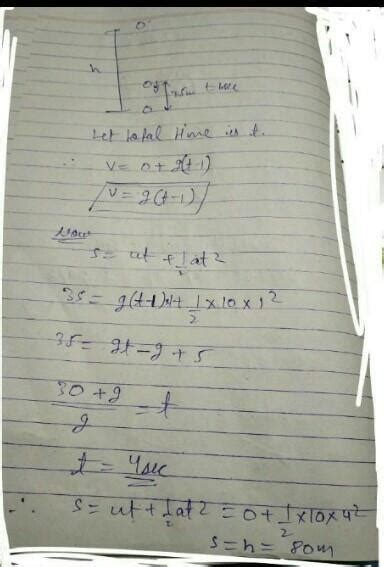 0
h
35m 1 sec
0
Let total time is t.
∴ v = 0 + g(t-1)
v = g(t-1)
Now
s = ut + 1/2 at2
35 = g(t-1)×1 + 1/2 × 10 × 1^2
35 = gt - g + 5
30 + g / g = t
t = 4sec
∴ s = ut + 1/2 at2 = 0 + 1/2 × 10 × 4^2
s = h = 80m